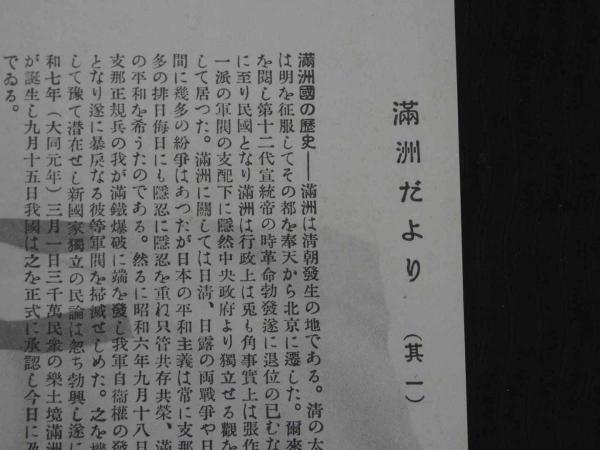 滿洲だより (其一)
滿洲國の歷史——滿洲は清朝發生の地である。清の太
は明を征服してその都を奉天から北京に遷した。爾來
を閱し第十二代宣統帝の時革命勃發遂に退位の已むな
に至り民國となり滿洲は行政上は兎も角事實上は張作
一派の軍閥の支配下に隱然中央政府より獨立せる觀を
して居つた。滿洲に關しては日清、日露の兩戰爭や日
間に幾多の紛爭はあつたが日本の平和主義は常に支那
多の排日侮日にも隱忍に隱忍を重ね只管共存共榮、滿
の平和を希うたのである。然るに昭和六年九月十八日
支那正規兵の我が滿鐵爆破に端を發し我軍自衞權の發
となり遂に暴戾なる彼等軍閥を掃滅せしめた。之を機
して豫て潜在せし新國家獨立の民論は忽ち勃興し遂に
和七年(大同元年)三月一日三千萬民衆の樂土境滿洲
が誕生し九月十五日我國は之を正式に承認し今日に及
でゐる。